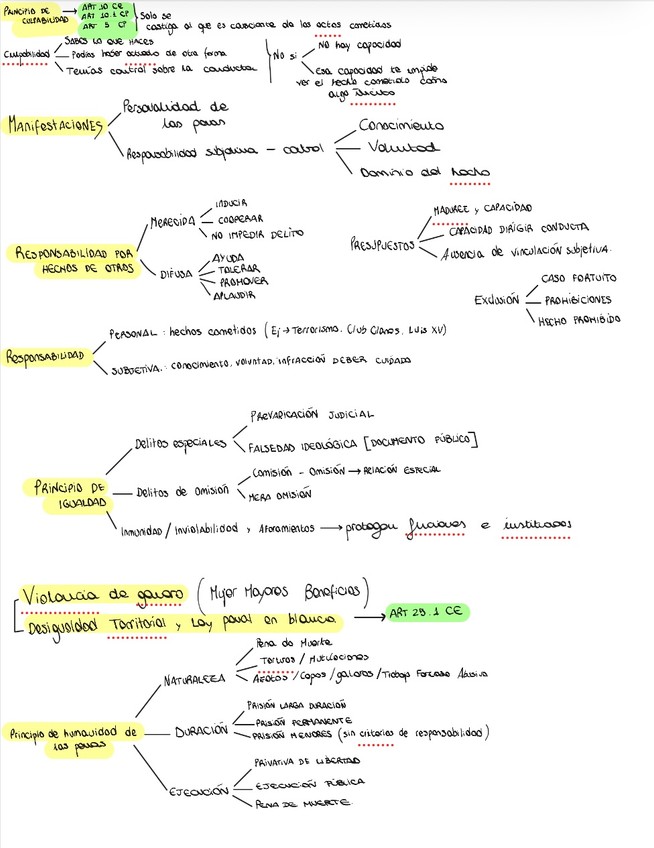 PRINCIPIO DE
CULPABILIDAD
ART 10 CE
ART 10.1 CP
ART 5 CP
Solo se
castiga al que es causante de los actos cometidos
Culpabilidad
SABES LO QUE HACES
Podías haber actuado de otra forma
Tenías control sobre la conducta
No si
No hay capacidad
Esa capacidad te impide
ver el hecho cometido como
algo ilícito
MANIFESTACIONES
Personalidad de
las penas
Responsabilidad subjetiva - control
Conocimiento
Voluntad
Dominio del hecho
RESPONSABILIDAD POR
HECHOS DE OTROS
MERECIDA
INDUCIR
COOPERAR
NO IMPEDIR DELITO
DIFUSA
AYUDA
TOLERAR
PROMOVER
APLAUDIR
PRESUPUESTOS
MADUREZ y CAPACIDAD
CAPACIDAD DIRIGIR CONDUCTA
Ausencia de vinculación subjetiva.
Exclusión
CASO FORTUITO
PROHIBICIONES
HECHO PROHIBIDO
RESPONSABILIDAD
PERSONAL: hechos cometidos (Ej → Terrorismo, Club Clanes, Luis XV)
SUBJETIVA: conocimiento, voluntad, infracción DEBER CUIDADO
PRINCIPIO DE
IGUALDAD
Delitos especiales
PREVARICACIÓN JUDICIAL
FALSEDAD IDEOLÓGICA [DOCUMENTO PÚBLICO]
Delitos de omisión
Comisión - Omisión → RELACIÓN ESPECIAL
MERA OMISIÓN
Inmunidad / Inviolabilidad y Aforamientos → protegen funciones e instituciones
Violencia de género (Mujer Mayores Beneficios)
Desigualdad Territorial y Ley penal en blanco → ART 29.1 CE
Principio de humanidad de
las penas
NATURALEZA
Pena de Muerte
Torturas / Mutilaciones
Azotes / Cepos / galeras / Trabajo Forzoso Abusivo
DURACIÓN
PRISIÓN LARGA DURACIÓN
PRISIÓN PERMANENTE
PRISIÓN MENORES (sin criterios de responsabilidad)
EJECUCIÓN
PRIVATIVA DE LIBERTAD
EJECUCIÓN PÚBLICA
PENA DE MUERTE.